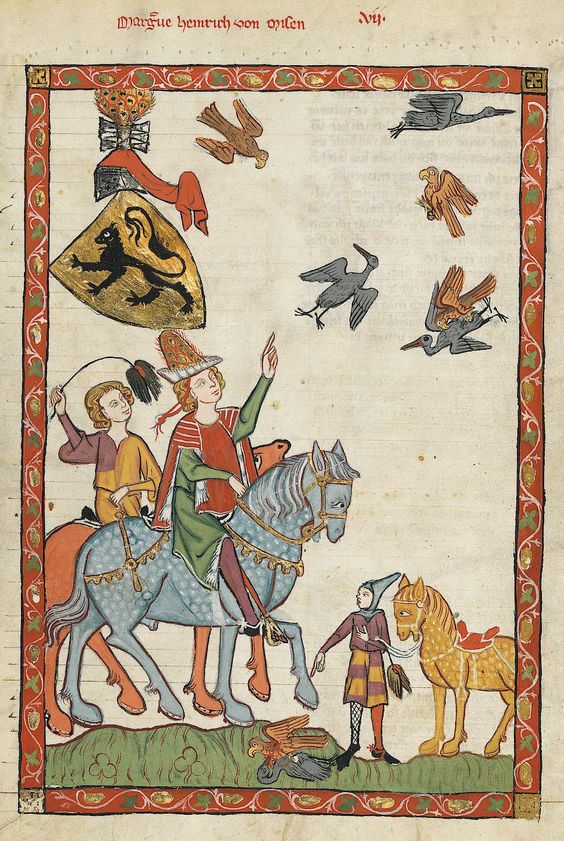 Margᷓue heinrich von misen .vij.